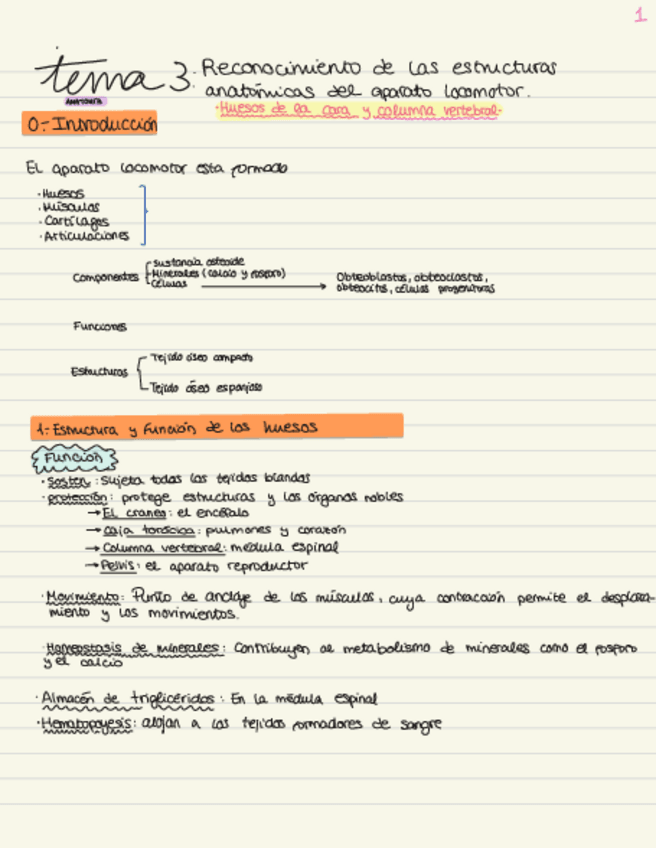 1
tema 3. Reconocimiento de las estructuras
anatómicas del aparato locomotor.
ANATOMIA
·Huesos de la cara y columna vertebral·
0.- Introducción
EL aparato locomotor esta formado
·Huesos
·Músculos
·Cartílagos
·Articulaciones
Componentes
Sustancia osteoide
Minerales (calcio y fósforo)
Células → Obteoblastos, obteoclastos,
obteocitos, células progenitoras
Funciones
Estructuras
Tejido óseo compacto
Tejido óseo esponjoso
1.- Estructura y Función de los huesos
Función
·Sosten: Sujeta todas los tejidos blandos
·protección: protege estructuras y los órganos nobles
→ EL craneo: el encéfalo
→ Caja torácica: pulmones y corazón
→ Columna vertebral: médula espinal
→ Pelvis: el aparato reproductor
·Movimiento: Punto de anclaje de los músculos, cuya contracción permite el desplaza-
miento y los movimientos.
·Homeostasis de minerales: Contribuyen al metabolismo de minerales como el fosforo
y el calcio
·Almacén de triglicéridos: En la médula espinal
·Hematopoyesis: alojan a los tejidos formadores de sangre